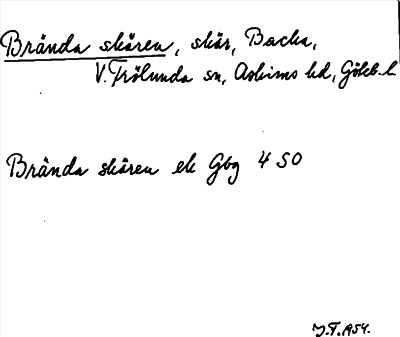 Brända skären, skär, Backa,
V. Frölunda sn, Askims hd, Göteb. l
Brända skären ek Gbg 4 SO
J.F. 1954.